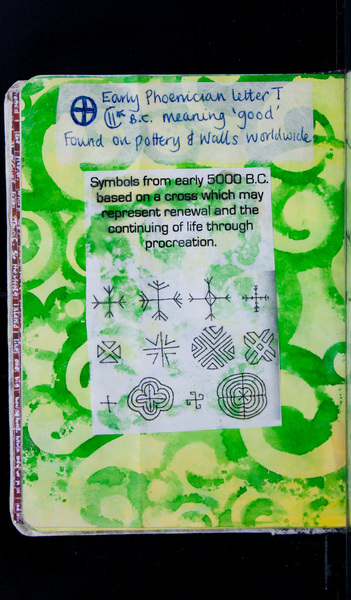 Early Phoenician letter T
B.C. meaning 'good'
Found on pottery & walls worldwide
Symbols from early 5000 B.C.
based on a cross which may
represent renewal and the
continuing of life through
procreation.